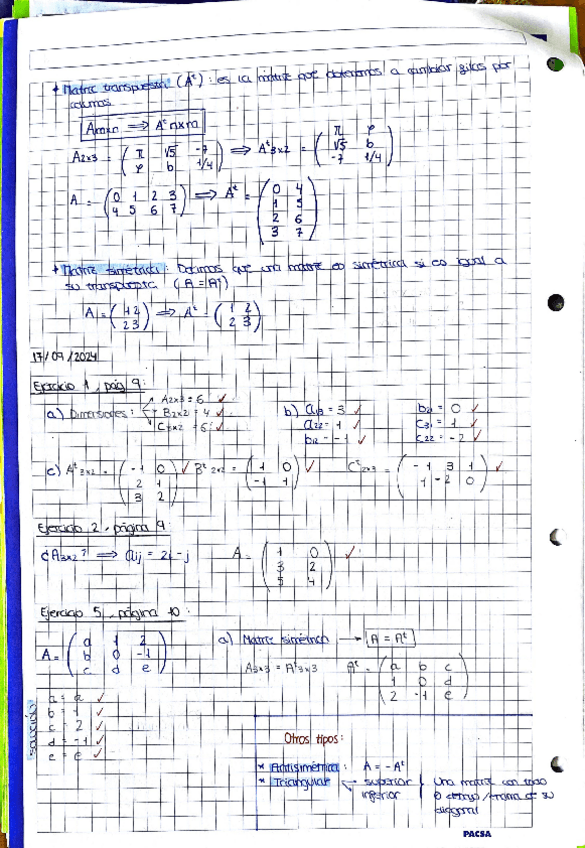 * Matriz transpuesta (Aᵗ): es la matriz que obtenemos a cambiar filas por
columnas
Amxn ⟹ Aᵗ nxm
A2x3 = ( π √5 -7 ) ⟹ Aᵗ3x2 = ( π φ )
( φ b 1/4 ) ( √5 b )
( -7 1/4 )
A = ( 0 1 2 3 ) ⟹ Aᵗ = ( 0 4 )
( 4 5 6 7 ) ( 1 5 )
( 2 6 )
( 3 7 )
* Matriz simétrica: Decimos que una matriz es simétrica si es igual a
su transpuesta (A = Aᵗ)
A = ( 1 2 ) ⟹ Aᵗ = ( 1 2 )
( 2 3 ) ( 2 3 )
17/09/2024
Ejercicio 1, pág 9:
a) Dimensiones: A2x3 = 6 ✓
B2x2 = 4 ✓
C3x2 = 6 ✓
b) a13 = 3 ✓ b21 = 0 ✓
a22 = 1 ✓ c31 = 1 ✓
b12 = -1 ✓ c22 = -2 ✓
c) Aᵗ3x2 = ( -1 0 ) ✓ Bᵗ2x2 = ( 1 0 ) ✓ Cᵗ2x3 = ( -1 3 1 ) ✓
( 2 1 ) ( -1 1 ) ( 1 -2 0 )
( 3 2 )
Ejercicio 2, página 9:
¿A3x2? ⟹ aij = 2i - j A = ( 1 0 ) ✓
( 3 2 )
( 5 4 )
Ejercicio 5, página 10:
A = ( a 1 2 )
( b 0 -1 )
( c d e )
a) Matriz simétrica → A = Aᵗ
A3x3 = Aᵗ3x3 Aᵗ = ( a b c )
( 1 0 d )
( 2 -1 e )
SOLUCIÓN
a = a ✓
b = 1 ✓
c = 2 ✓
d = -1 ✓
e = e ✓
Otros tipos:
* Antisimétrica: A = -Aᵗ
* Triangular superior
inferior
Una matriz con todo
0 debajo/encima de su
diagonal
PACSA